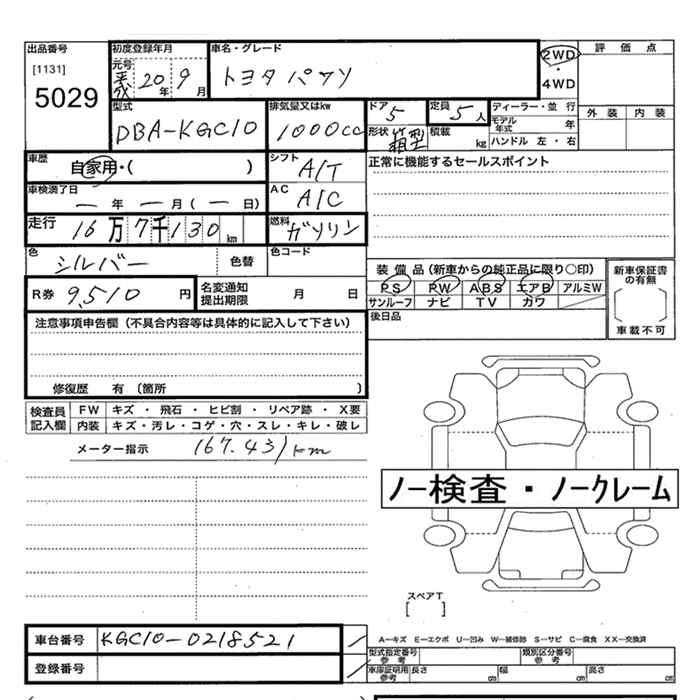 出品番号 初度登録年月 車名・グレード 2WD ・ 4WD 評価点
[1131] 元号 平成 20年 9月 トヨタ パッソ
5029
型式 排気量又はkw ドア 5 定員 5人 ディーラー・並行 外装 内装
DBA-KGC10 1000cc 形状 箱型 積載 kg モデル年式 年
ハンドル 左・右
車歴 自家用・( ) シフト A/T 正常に機能するセールスポイント
車検満了日 ー年 ー月(ー日) AC A/C
走行 16万7千130km 燃料 ガソリン
色 シルバー 色替 色コード
R券 9,510円 名変通知提出期限 月 日
装備品(新車からの純正品に限り○印) 新車保証書の有無
PS PW ABS エアB アルミW
サンルーフ ナビ TV カワ
[ ] 車載不可
後日品
注意事項申告欄(不具合内容等は具体的に記入して下さい)
修復歴 有 〔箇所 )
検査員記入欄 FW キズ・飛石・ヒビ割・リペア跡・X要
内装 キズ・汚レ・コゲ・穴・スレ・キレ・破レ
メーター指示 167.431km
ノー検査・ノークレーム
スペアT
[ ]
車台番号 KGC10-0218521
登録番号
A-キズ E-エクボ U-凹み W-補修跡 S-サビ C-腐食 XX-交換済
型式指定番号 参考 類別区分番号 参考
車庫証明用 参考 長さ cm 幅 cm 高さ cm